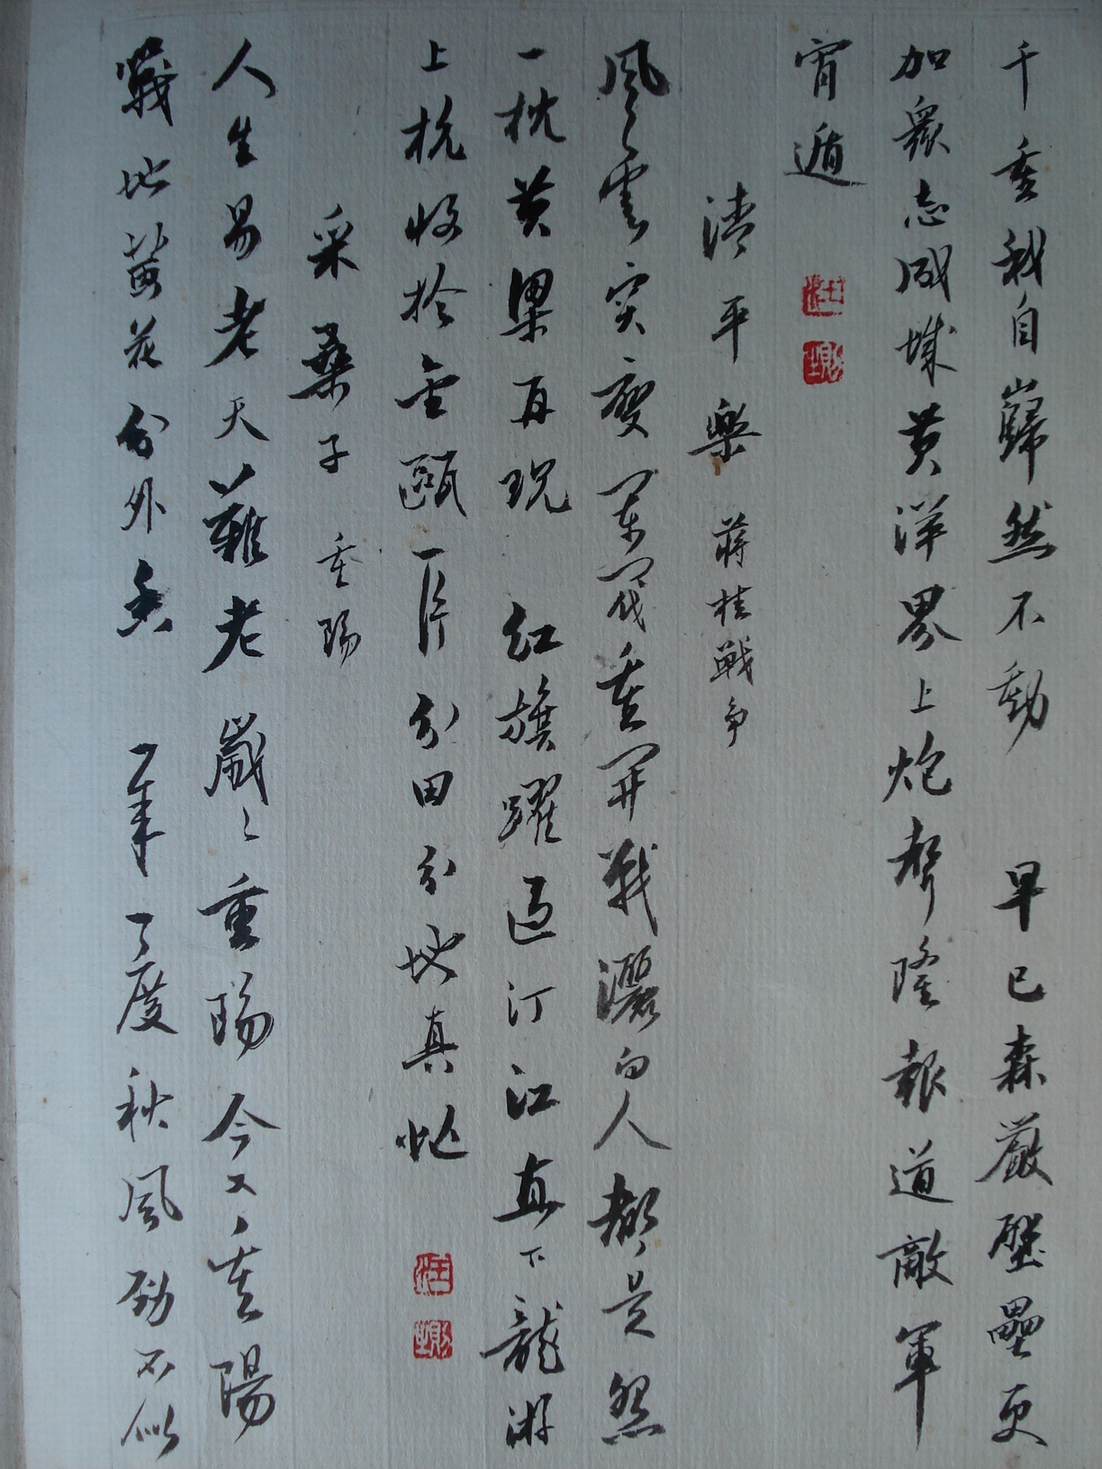 千重我自巋然不動 早已森嚴壁壘更
加眾志成城黃洋界上炮聲隆報道敵軍
宵遁
清平樂 蔣桂戰爭
風雲突變軍閥重開戰灑向人都是怨
一枕黃粱再現 紅旗躍過汀江直下龍游
上杭收拾金甌一片分田分地真忙
采桑子 重陽
人生易老天難老 歲々重陽今又重陽
戰地黃花分外香 一年一度秋風勁不似